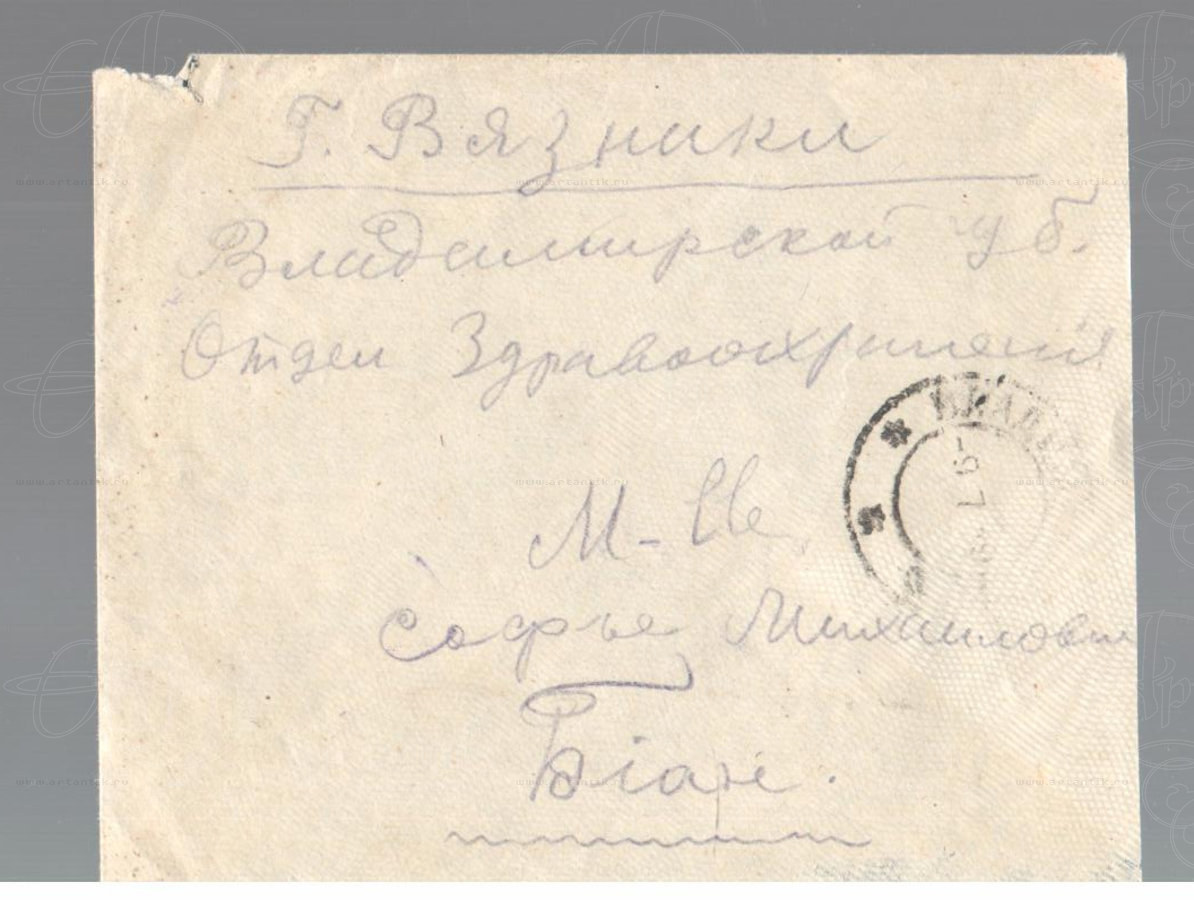 Г. Вязники
Владимирской губ.
Отдел Здравоохраненія
М-lle
Софье Михаиловн
Біанк.
www.artantik.ru